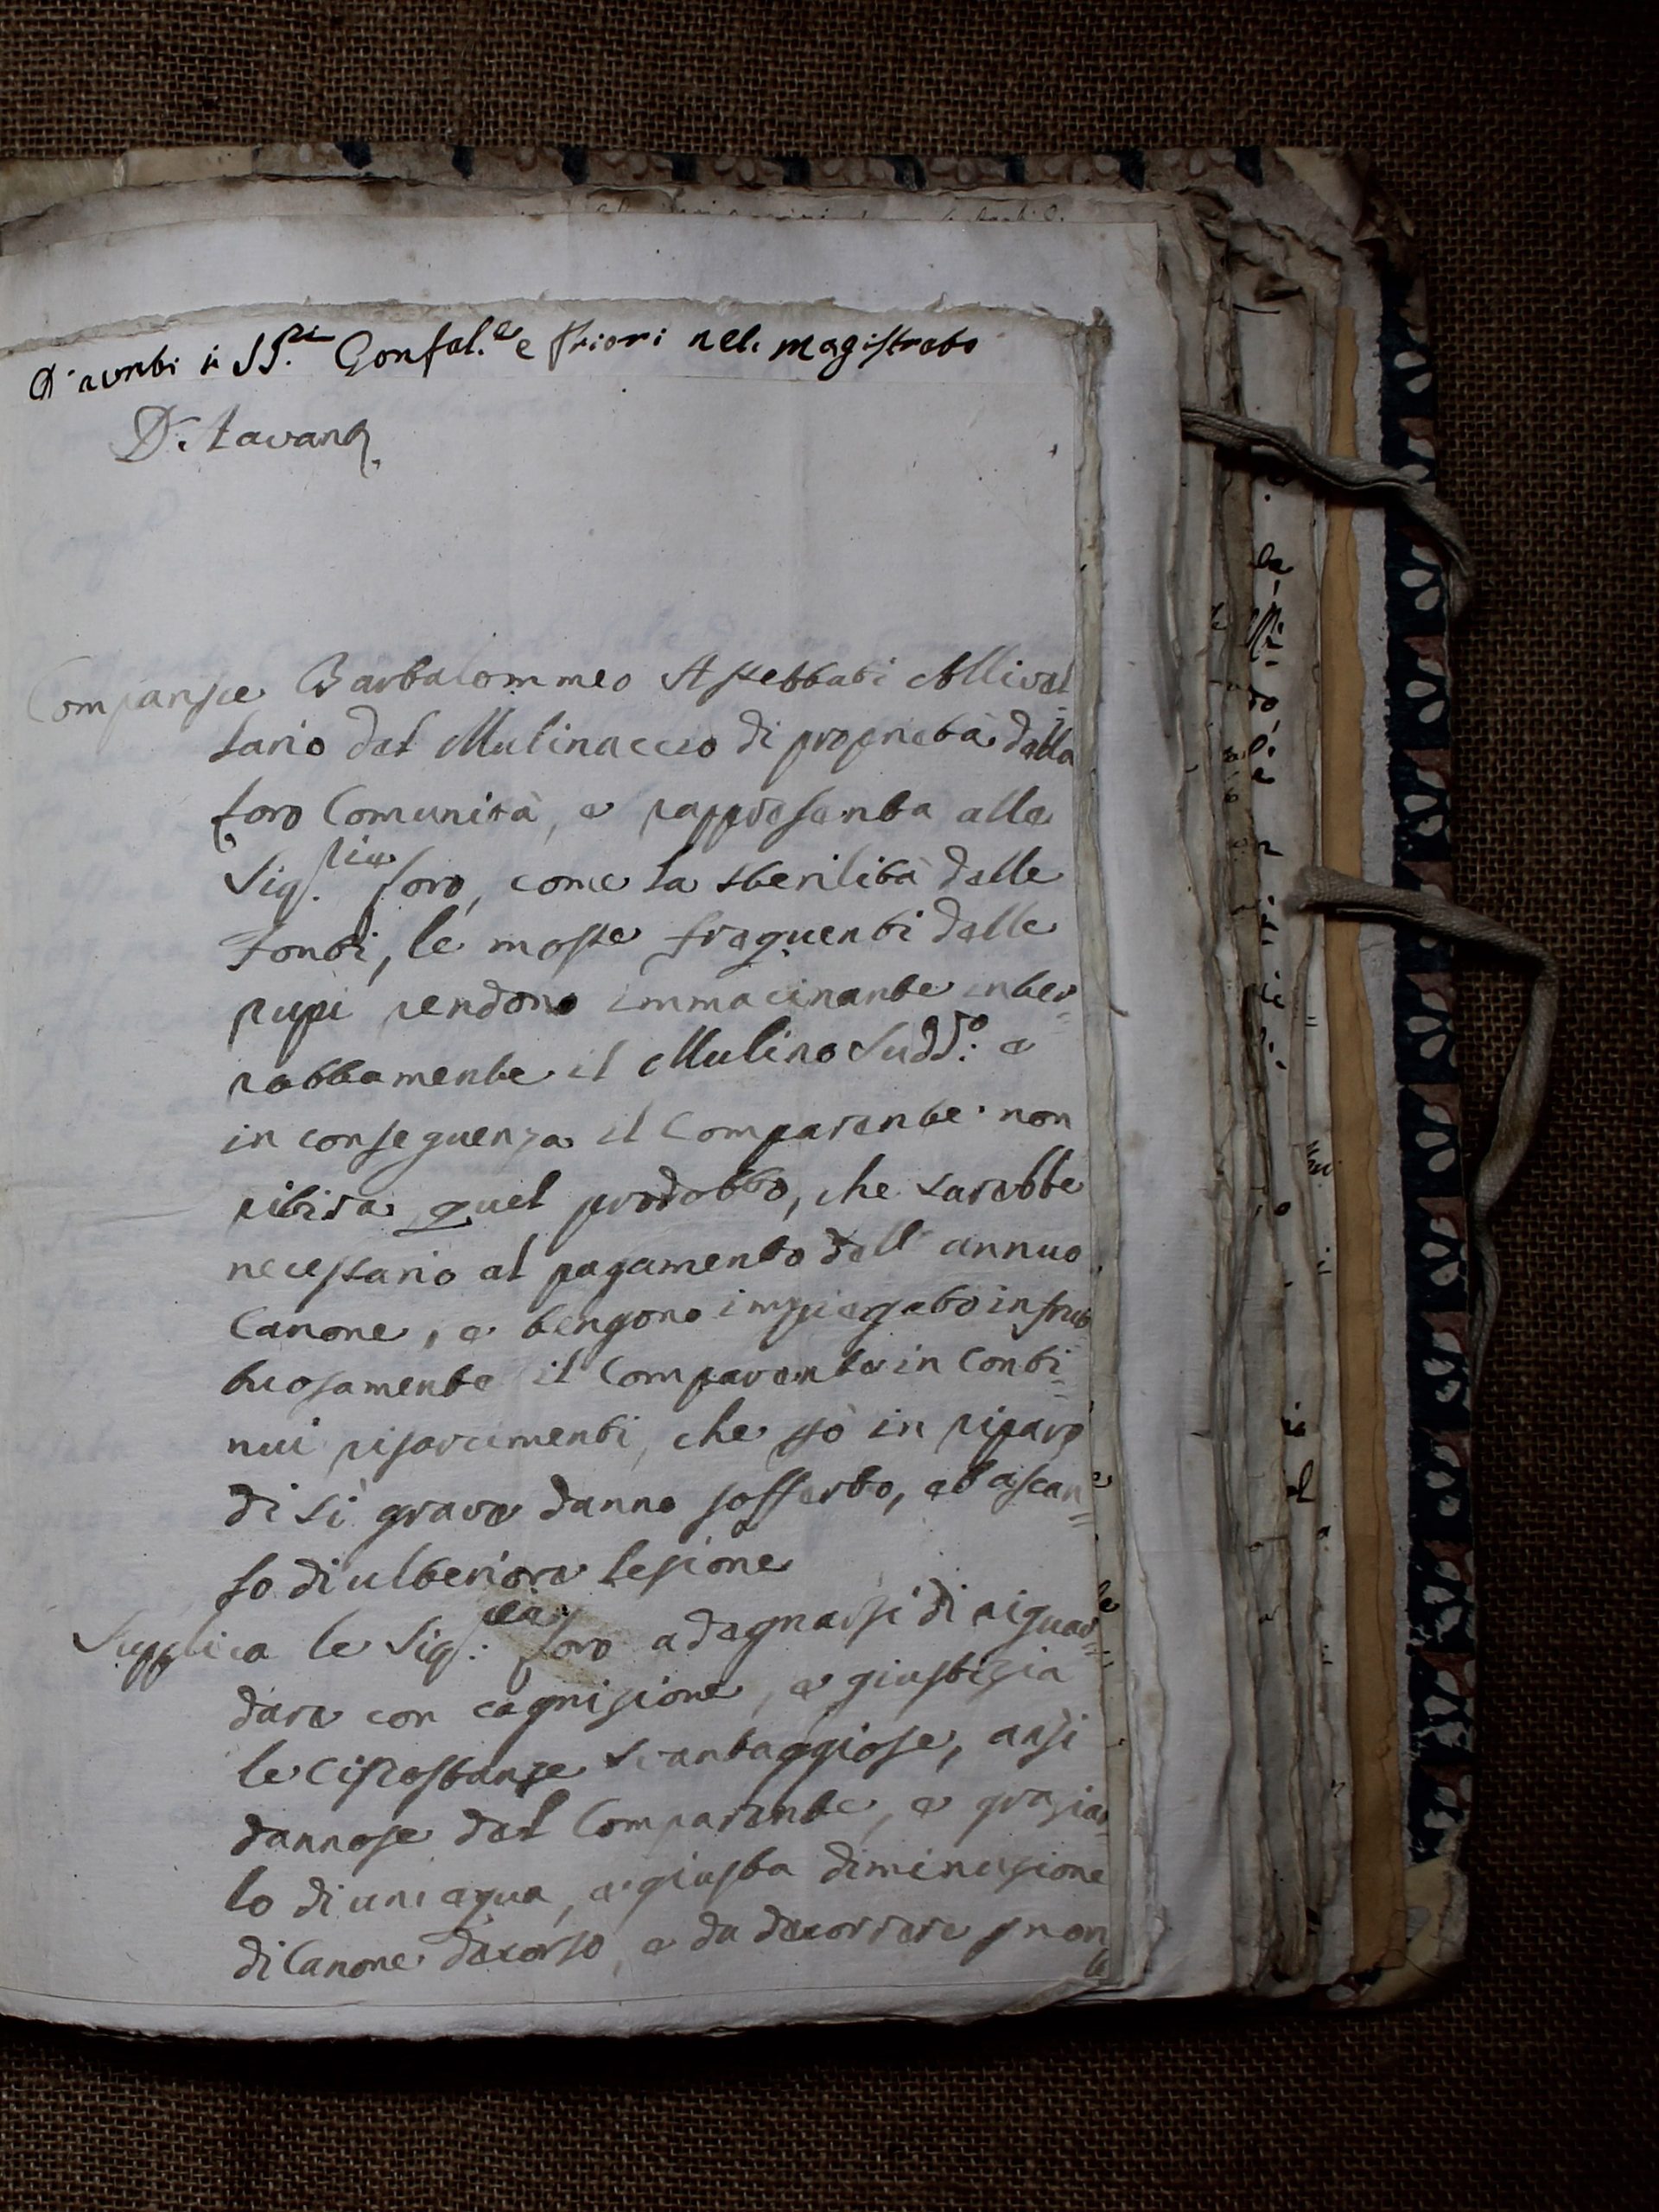 D'avanti i SS.ri Gonfal.e e Priori nel magistrato
D. Lavana
Comparisce Bartolommeo Aspettati Allivel=
lario del Mulinaccio di proprietà della
loro Comunità, e rappresenta alle
Sig.rie loro, come la sterilità delle
Fonti, le mosse frequenti delle
rupi rendono immacinante inter=
rottamente il Mulino Sudd.o e
in conseguenza il Comparente non
ritira quel prodotto, che sarebbe
necessario al pagamento dell'annuo
Canone, e tengono impiegato infrut
tuosamente il Comparente in Conti=
nui risarcimenti, che però in riparo
di sì grave danno sofferto, et a scan=
so di ulteriore lesione
Supplica le Sig.rie loro a degnarsi di riguar=
dare con cognizione, e giustizia
le cirostanze svantaggiose, anzi
dannose del Comparente, e graziar=
lo di una equa, e giusta diminuzione
di Canone decorso, e da decorrere p non